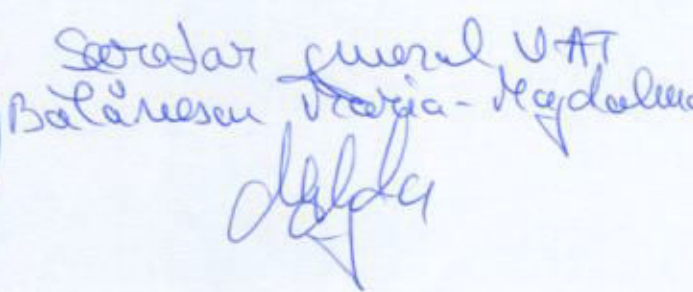 Secretar general UAT
Bălănescu Maria-Magdalena